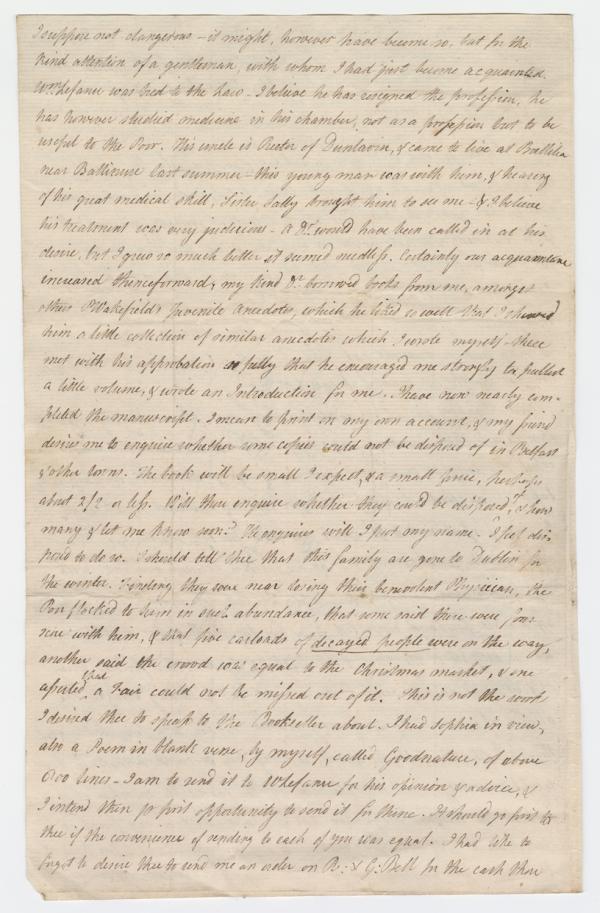 I suppose not dangerous – it might, however have become so, but for the
kind attention of a gentleman, with whom I had just become acquainted.
Wm Lefanu was bred to the Law – I believe he has resigned the profession, he
has however studied medicine in his chamber, not as a profession but to be
useful to the Poor. His uncle is Rector of Dunlavin, & came to live at
near Ballitore last summer – this young man was with him, & hearing
of his great medical skill, Sister Sally brought him to see me – & I believe
his treatment was very judicious – a Dr. would have been called in at his
desire, but I grew so much better it seemed needless. Certainly our acquaintance
increased thenceforward, my kind Dr. borrowed books from me, amongst
others P Wakefield's Juvenile Anecdotes, which he liked so well that I shewed
him a little collection of similar anecdotes which I wrote myself – these
met with his approbation so fully that he encouraged me strongly to publish
a little volume, & wrote an Introduction for me. I have now nearly com-
pleted the manuscript. I mean to print on my own account, & my friend
desires me to enquire whether some copies could not be disposed of in Belfast
& other towns. The book will be small I expect, & a small price, perhaps
about 2/2 or less. Will thou enquire whether they could be disposed of, & how
many & let me know soon? He enquires will I put my name – I feel dis
posed to do so. I should tell thee that this family are gone to Dublin for
the winter. Finding they were near losing their benevolent Physician, the
Poor flocked to him in such abundance, that some said there were four
score with him, & that five carloads of decayed people were on the way,
another said the crowd was equal to the Christmas market, & one
asserted that a Fair could not be missed out of it. This is not the work
I desired thee to speak to the Bookseller about. I had Sophia in view,
also a Poem in blank verse, by myself, called Goodnature, of above
lines – I am to send it to W Lefanu for his opinion & advice, &
I intend then pr first opportunity to send it for thine. It should go first to
thee if the convenience of sending to each of you was equal. I had like to
forgot to desire thee to send me an order on R: & G: Bell for the cash thou